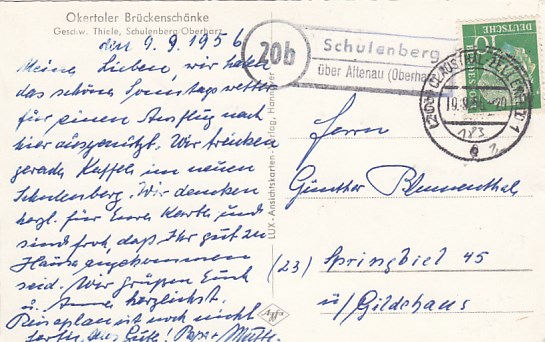 Okertaler Brückenschänke
Geschw. Thiele, Schulenberg/Oberharz
den 9.9.1956
Meine Lieben, wir haben
das schöne Sonntagswetter
für einen Ausflug nach
hier ausgenützt. Wir trinken
gerade Kaffee im neuen
Schulenberg. Wir danken
herzl. für Eure Karte und
sind froh, daß Ihr gut zu
Hause angekommen
seid. Wir grüßen Euch
u. herzlichst.
Reiseplan ist noch nicht
fertig. Alles Gute! Papa + Mutti.
LUX-Ansichtskarten-Verlag, Hannover
20b
Schulenberg
über Altenau (Oberharz)
DEUTSCHE
BUNDESPOST
10
CLAUSTHAL-ZELLERFELD 1
183
Herrn
Günther Blumenthal
(23) Springbiel 45
ü/Gildehaus